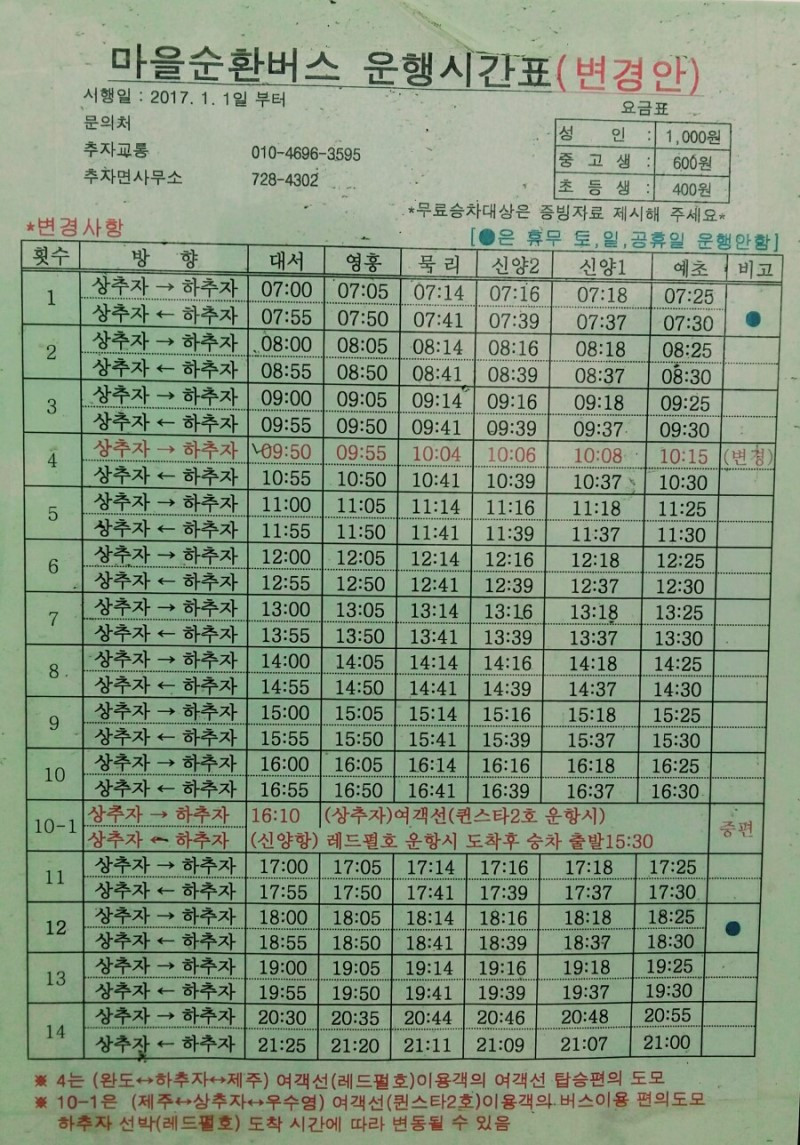 마을순환버스 운행시간표(변경안)
시행일 : 2017. 1. 1일 부터
문의처
추자교통 010-4696-3595
추자면사무소 728-4302
요금표
성 인 : 1,000원
중 고 생 : 600원
초 등 생 : 400원
*무료승차대상은 증빙자료 제시해 주세요*
*변경사항
[●은 휴무 토,일,공휴일 운행안함]
횟수 방 향 대서 영흥 묵리 신양2 신양1 예초 비고
1 상추자 → 하추자 07:00 07:05 07:14 07:16 07:18 07:25
상추자 ← 하추자 07:55 07:50 07:41 07:39 07:37 07:30 ●
2 상추자 → 하추자 08:00 08:05 08:14 08:16 08:18 08:25
상추자 ← 하추자 08:55 08:50 08:41 08:39 08:37 08:30
3 상추자 → 하추자 09:00 09:05 09:14 09:16 09:18 09:25
상추자 ← 하추자 09:55 09:50 09:41 09:39 09:37 09:30
4 상추자 → 하추자 09:50 09:55 10:04 10:06 10:08 10:15 (변경)
상추자 ← 하추자 10:55 10:50 10:41 10:39 10:37 10:30
5 상추자 → 하추자 11:00 11:05 11:14 11:16 11:18 11:25
상추자 ← 하추자 11:55 11:50 11:41 11:39 11:37 11:30
6 상추자 → 하추자 12:00 12:05 12:14 12:16 12:18 12:25
상추자 ← 하추자 12:55 12:50 12:41 12:39 12:37 12:30
7 상추자 → 하추자 13:00 13:05 13:14 13:16 13:18 13:25
상추자 ← 하추자 13:55 13:50 13:41 13:39 13:37 13:30
8 상추자 → 하추자 14:00 14:05 14:14 14:16 14:18 14:25
상추자 ← 하추자 14:55 14:50 14:41 14:39 14:37 14:30
9 상추자 → 하추자 15:00 15:05 15:14 15:16 15:18 15:25
상추자 ← 하추자 15:55 15:50 15:41 15:39 15:37 15:30
10 상추자 → 하추자 16:00 16:05 16:14 16:16 16:18 16:25
상추자 ← 하추자 16:55 16:50 16:41 16:39 16:37 16:30
10-1 상추자 → 하추자 16:10 (상추자)여객선(퀸스타2호 운항시) 증편
상추자 ← 하추자 (신양항) 레드펄호 운항시 도착후 승차 출발15:30
11 상추자 → 하추자 17:00 17:05 17:14 17:16 17:18 17:25
상추자 ← 하추자 17:55 17:50 17:41 17:39 17:37 17:30
12 상추자 → 하추자 18:00 18:05 18:14 18:16 18:18 18:25 ●
상추자 ← 하추자 18:55 18:50 18:41 18:39 18:37 18:30
13 상추자 → 하추자 19:00 19:05 19:14 19:16 19:18 19:25
상추자 ← 하추자 19:55 19:50 19:41 19:39 19:37 19:30
14 상추자 → 하추자 20:30 20:35 20:44 20:46 20:48 20:55
상추자 ← 하추자 21:25 21:20 21:11 21:09 21:07 21:00
※ 4는 (완도↔하추자↔제주) 여객선(레드펄호)이용객의 여객선 탑승편의 도모
※ 10-1은 (제주↔상추자↔우수영) 여객선(퀸스타2호)이용객의 버스이용 편의도모
하추자 선박(레드펄호) 도착 시간에 따라 변동될 수 있음